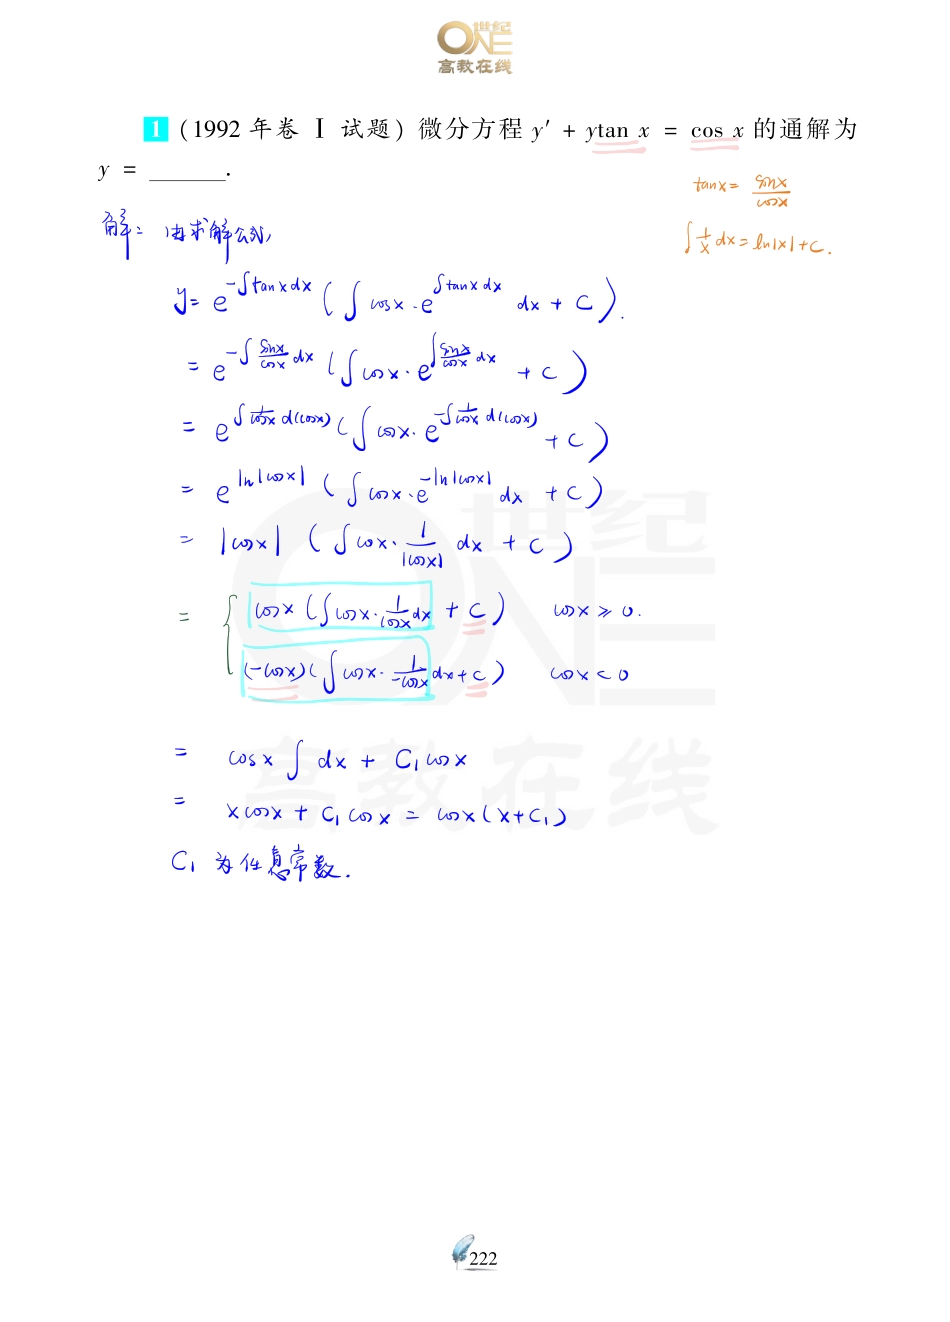 世纪
ONE
高教在线
1 (1992 年卷 Ⅰ 试题) 微分方程 y′ + ytan x = cos x 的通解为
y = ______.
tanx = sinx/cosx
∫ 1/x dx = ln|x| + C.
解: 由求解公式,
y = e^(-∫tanxdx) (∫ cosx · e^(∫tanxdx) dx + C).
= e^(-∫ sinx/cosx dx) (∫cosx · e^(∫ sinx/cosx dx) + C)
= e^(∫ 1/cosx d(cosx)) (∫ cosx · e^(-∫ 1/cosx d(cosx)) + C)
= e^(ln|cosx|) (∫ cosx · e^(-ln|cosx|) dx + C)
= |cosx| (∫cosx · 1/|cosx| dx + C)
= { cosx (∫cosx · 1/cosx dx + C) cosx ≥ 0.
(-cosx) (∫ cosx · 1/-cosx dx + C) cosx < 0
= cosx ∫ dx + C₁ cosx
= xcosx + C₁ cosx = cosx(x+C₁)
C₁ 为任意常数.
世纪
ONE
高教在线
222